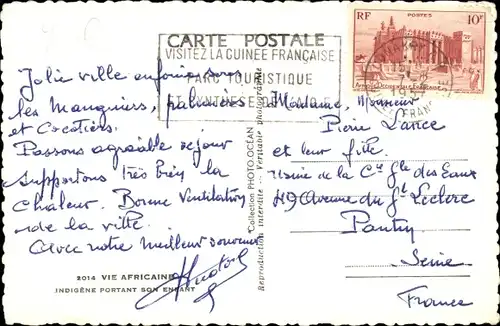 CARTE POSTALE
VISITEZ LA GUINÉE FRANÇAISE
TOURISTIQUE
RF
POSTES
10F
Jolie ville enfouie
les Manguiers, palmiers
et Cocotiers.
Passons agréable séjour
Supportons très bien la
Chaleur. Bonne Ventilation
de la ville.
Avec notre Meilleur souvenir
2014 VIE AFRICAINE
INDIGÈNE PORTANT SON ENFANT
Collection PHOTO-OCÉAN
Reproduction interdite — Véritable photographie
Madame, Monsieur
Pierre Lance
et leur fille
de la Cie Gle des Eaux
49 Avenue du Gl Leclerc
Pantin
Seine
France